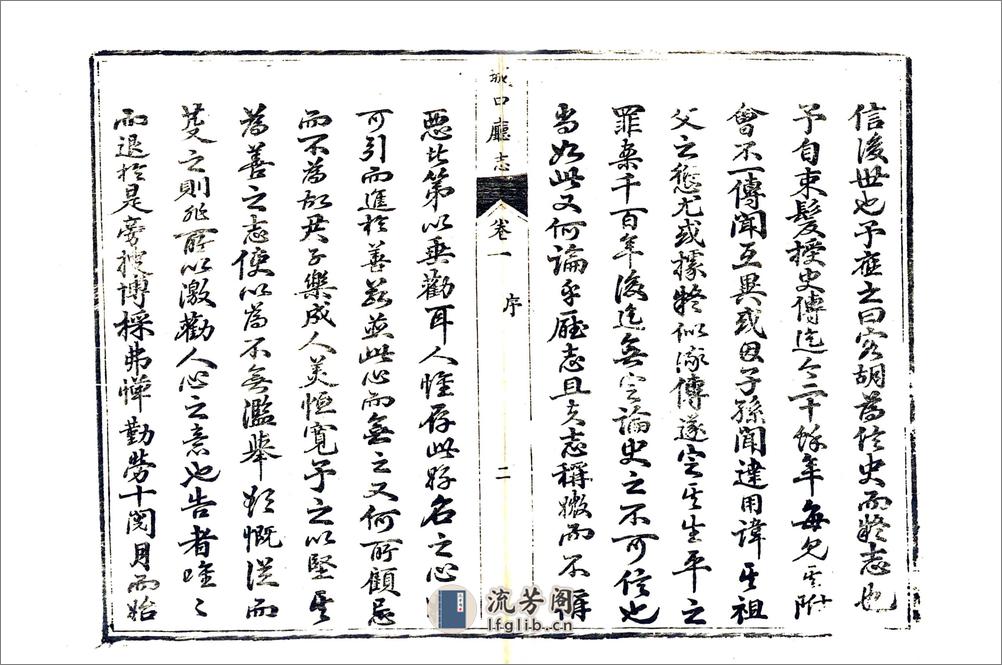 信後世也予應之曰客胡為信史而疑志也
予自束髮授史傳迄今二十餘年每見其附
會不一傳聞互異或因子孫聞達用諱其祖
父之愆尤或據疑似流傳遂定其生平之
罪案千百年後迄無定論史之不可信也
尚如此又何論乎廳志且夫志稱媺而不稱
惡此第以垂勸耳人惟存此好名之心
可引而進於善若並此心而無之又何所顧忌
而不為故君子樂成人美恒寬予之以堅其
為善之志使以為不無濫舉頓慨從而
芟之則非所以激勸人心之意也告者唯唯
而退於是旁搜博採弗憚勤勞十閱月而始
城口廳志
卷一
序
二
流芳阁
lfglib.cn